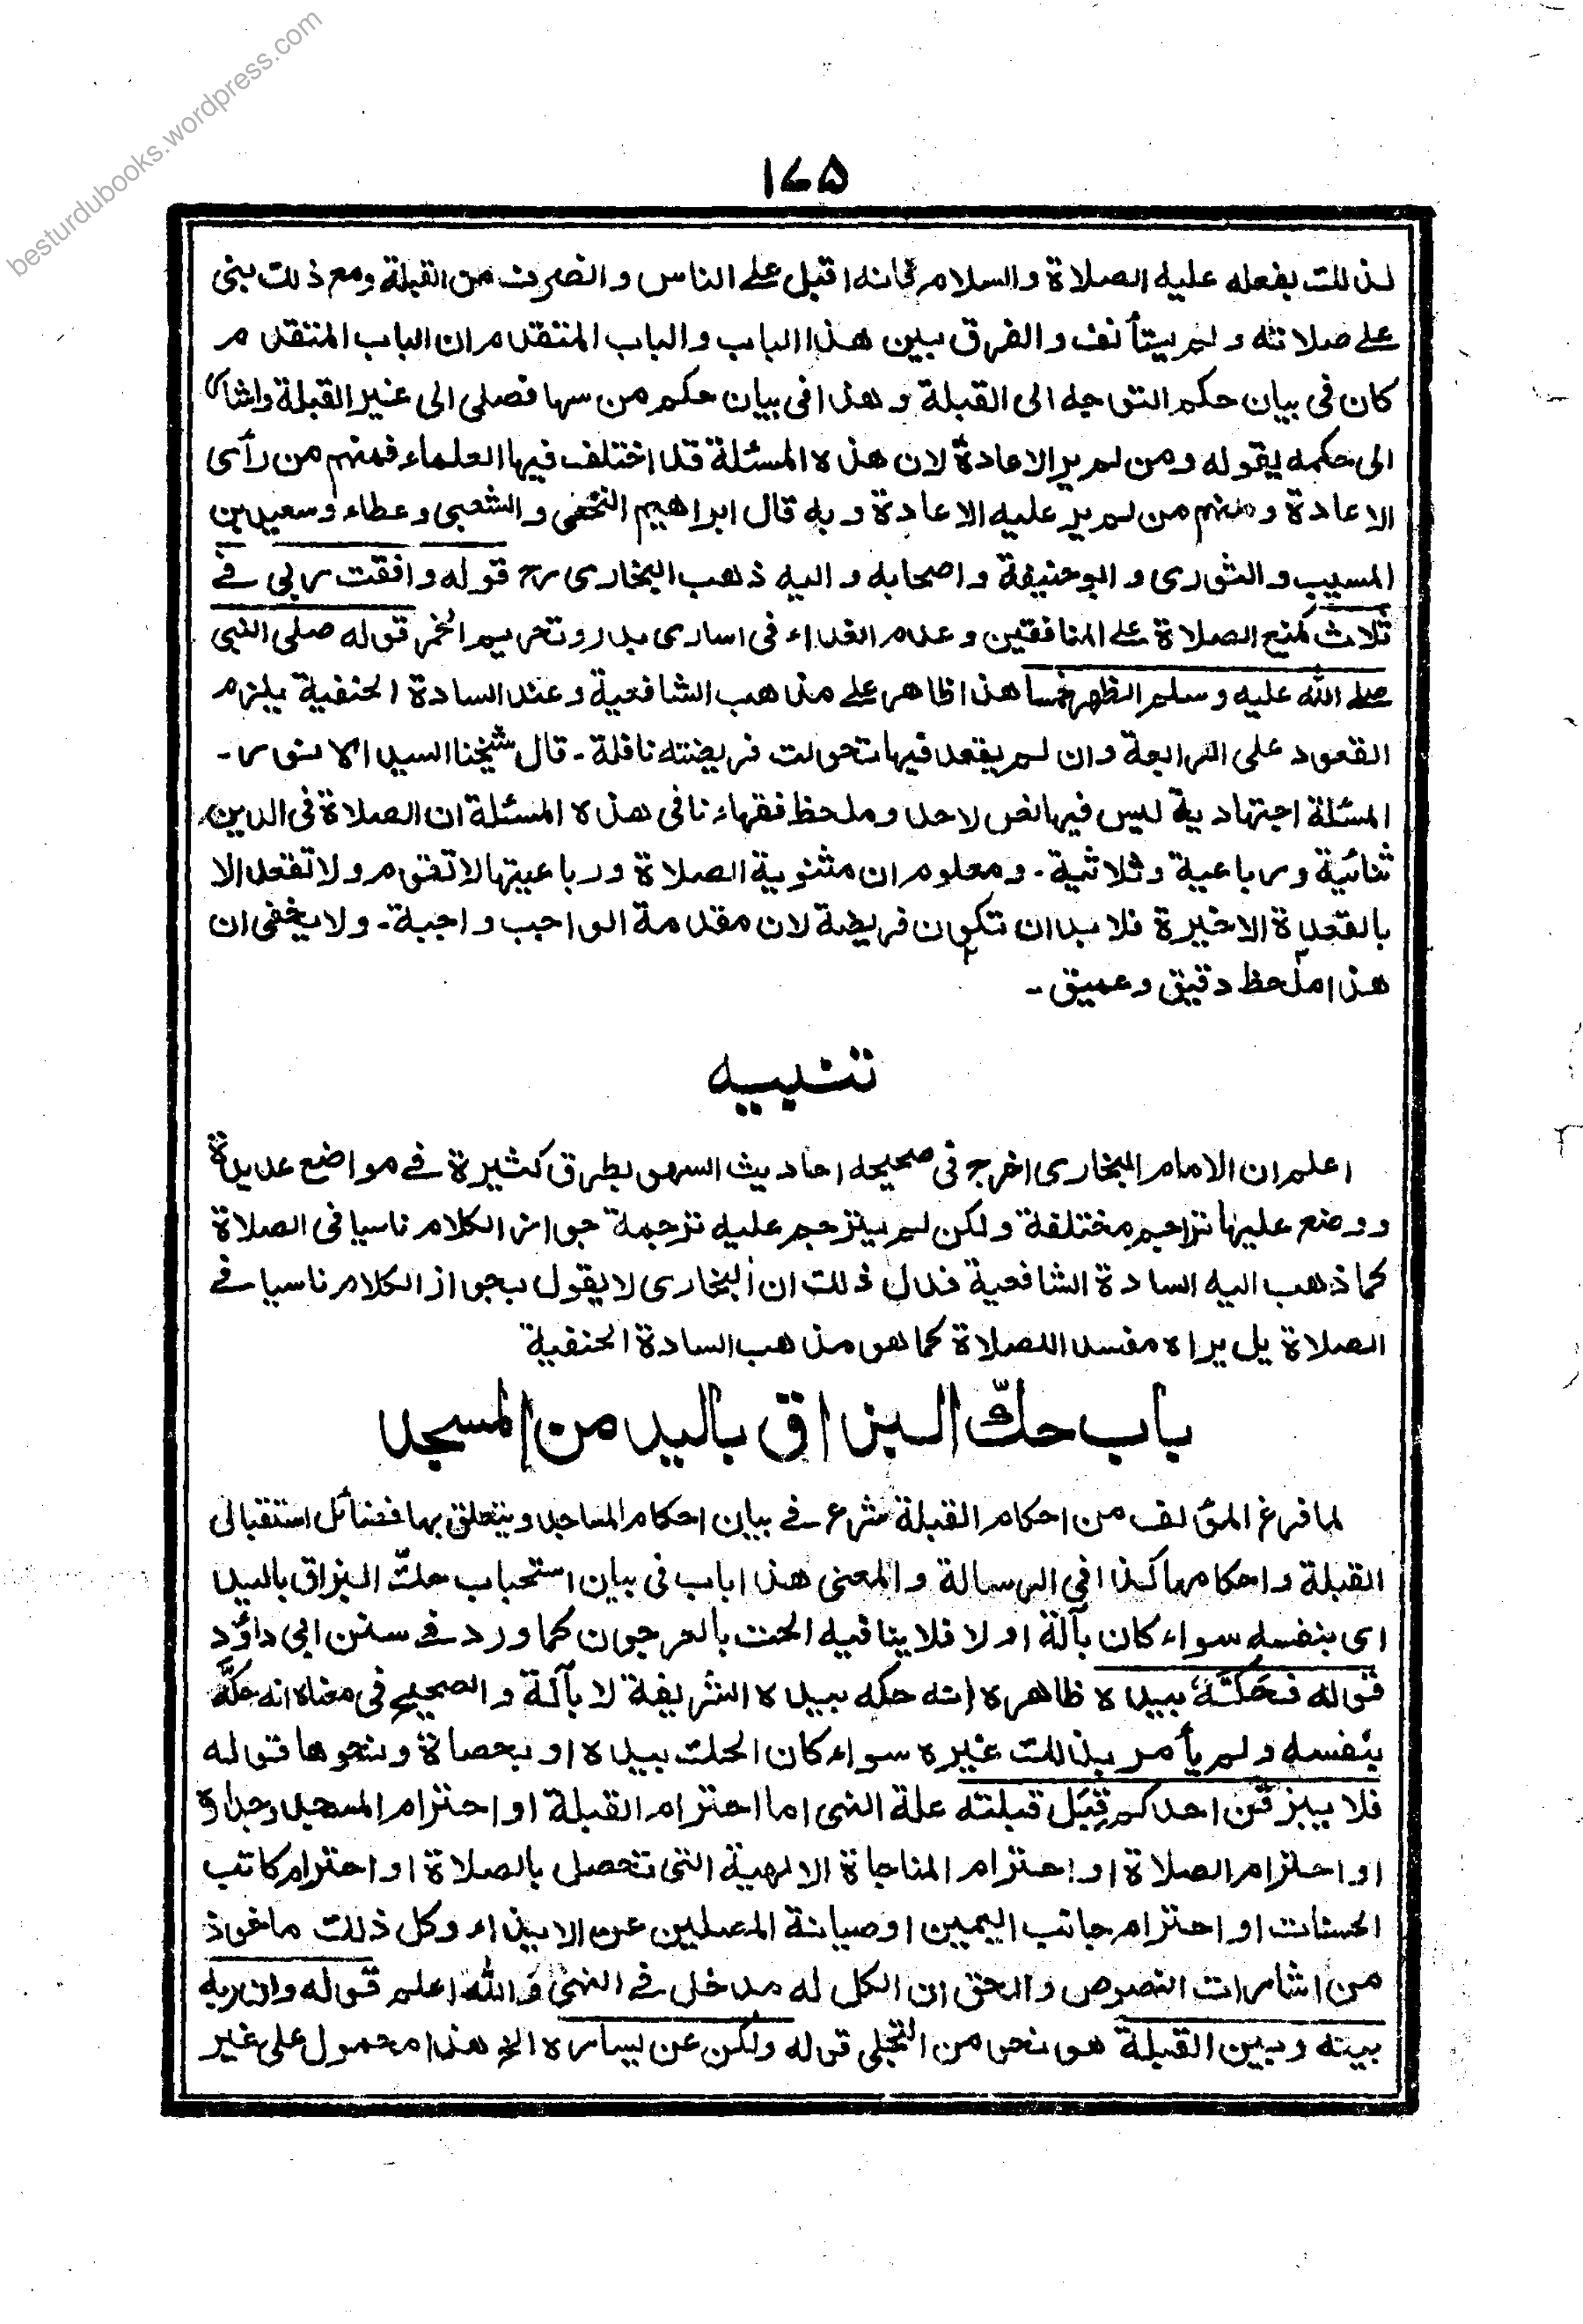 besturdubooks.wordpress.com
۱۷۵
لذلك بفعله عليه الصلاة والسلام فانه اقبل على الناس وانصرف من القبلة ومع ذلك بنى
على صلاته ولم يستأنف والفرق بين هذا الباب والباب المتقدم ان الباب المتقدم
كان فى بيان حكم التوجه الى القبلة وهذا فى بيان حكم من سها فصلى الى غير القبلة واشار
الى حكمه بقوله ومن لم ير الاعادة لان هذه المسئلة قد اختلف فيها العلماء فمنهم من رأى
الاعادة ومنهم من لم ير عليه الاعادة وبه قال ابراهيم النخعى والشعبى وعطاء وسعيد بن
المسيب والثورى وابو حنيفة واصحابه واليه ذهب البخارى رح قوله وافقت ربى فى
ثلاث كمنع الصلاة على المنافقين وعدم الفداء فى اسارى بدر وتحريم الخمر قوله صلى النبى
صلى الله عليه وسلم الظهر خمسا هذا ظاهر على مذهب الشافعية وعند السادة الحنفية يلزم
القعود على الرابعة وان لم يقعد فيها تحولت فريضته نافلة - قال شيخنا السيد الانور -
المسئلة اجتهادية ليس فيها نص لاحد وملحظ فقهاءنا فى هذه المسئلة ان الصلاة فى الدين
ثنائية ورباعية وثلاثية - ومعلوم ان مثنوية الصلاة ورباعيتها لا تقوم ولا تقعد الا
بالقعدة الاخيرة فلا بد ان تكون فريضة لان مقدمة الواجب واجبة - ولا يخفى ان
هذا ملحظ دقيق وعميق -
تنبيه
اعلم ان الامام البخارى اخرج فى صحيحه احاديث السهو بطرق كثيرة فى مواضع عديدة
ووضع عليها تراجم مختلفة ولكن لم يترجم عليه ترجمة جواز الكلام ناسيا فى الصلاة
كما ذهب اليه السادة الشافعية فدل ذلك ان البخارى لا يقول بجواز الكلام ناسيا فى
الصلاة بل يراه مفسدا للصلاة كما هو مذهب السادة الحنفية
باب حكّ البزاق باليد من المسجد
لما فرغ المؤلف من احكام القبلة شرع فى بيان احكام المساجد ويتعلق بها فضائل استقبالى
القبلة واحكامها كذا فى الرسالة والمعنى هذا باب فى بيان استحباب حكّ البزاق باليد
اى بنفسه سواء كان بآلة او لا فلا ينافيه الحت بالعرجون كما ورد فى سنن ابى داؤد
قوله فَحَكَّهُ بيده ظاهره انه حكه بيده الشريفة لا بآلة والصحيح فى معناه انه حكّه
بنفسه ولم يأمر بذلك غيره سواء كان الحك بيده او بحصاة ونحوها قوله
فلا يبزقن احدكم قِبَل قبلته علة النهى اما احترام القبلة او احترام المسجد وجداره
او احترام الصلاة او احترام المناجاة الالهية التى تحصل بالصلاة او احترام كاتب
الحسنات او احترام جانب اليمين او صيانة المصلين عن الايذاء وكل ذلك ماخوذ
من اشارات النصوص والحق ان الكل له مدخل فى النهى والله اعلم قوله وان ربه
بينه وبين القبلة هو نحو من التجلى قوله ولكن عن يساره الخ هذا محمول على غير